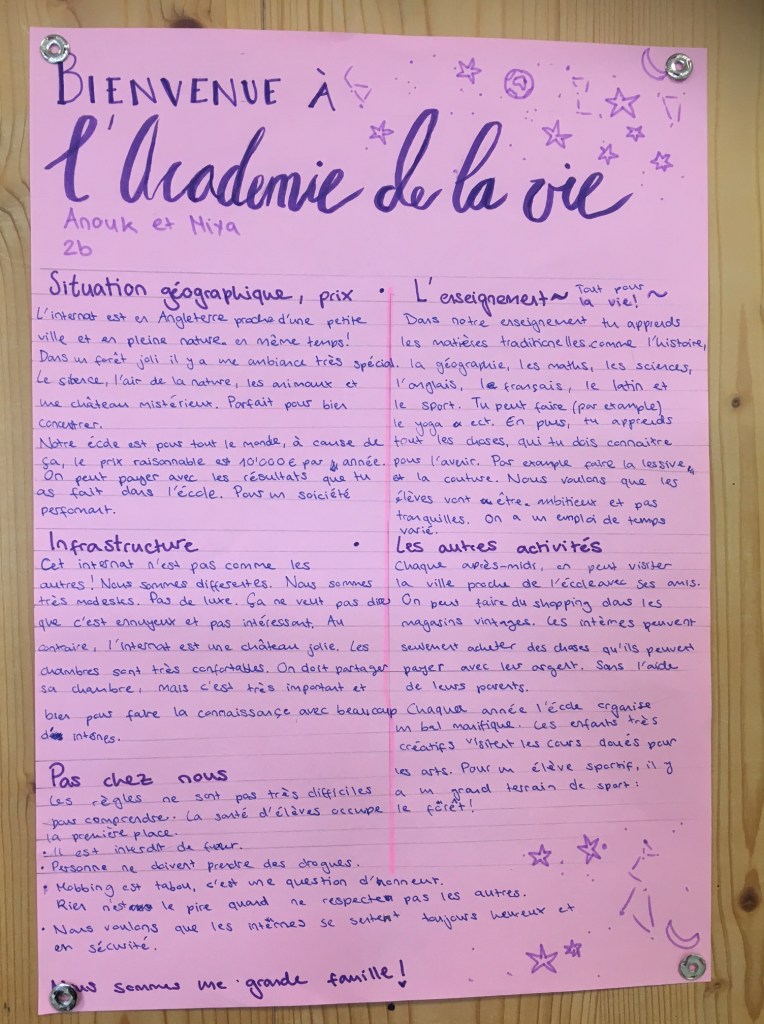 BIENVENUE À
l'Academie de la vie
Anouk et Miya
2b
Situation géographique, prix
L'internat est en Angleterre proche d'une petite
ville et en pleine nature en même temps!
Dans un forêt joli il y a une ambiance très spécial.
Le silence, l'air de la nature, les animaux et
une château mistérieux. Parfait pour bien
concentrer.
Notre école est pour tout le monde, à cause de
ça, le prix raisonnable est 10'000 € par année.
On peut payer avec les résultats que tu
as fait dans l'école. Pour un soiciété
perfomant.
Infrastructure
Cet internat n'est pas comme les
autres! Nous sommes differentes. Nous sommes
très modestes. Pas de luxe. Ça ne veut pas dire
que c'est ennuyeux et pas intéressant. Au
contraire, l'internat est une château jolie. Les
chambres sont très confortables. On doit partager
sa chambre, mais c'est très important et
bien pour faire la connaissance avec beaucoup
des internes.
Pas chez nous
Les règles ne sont pas très difficiles
pour comprendre. La santé d'élèves occupe
la première place.
• Il est interdit de fumer.
• Personne ne doivent prendre des drogues.
• Mobbing est tabou, c'est une question d'honneur.
Rien n'est le pire quand ne respecten pas les autres.
• Nous voulons que les internes se sentent toujours heureux et
en sécurité.
Nous sommes une grande famille!
L'enseignement ~ Tout pour
la vie! ~
Dans notre enseignement tu apprends
les matières traditionelles comme l'histoire,
la géographie, les maths, les sciences,
l'anglais, le français, le latin et
le sport. Tu peut faire (par example)
le yoga ect. En plus, tu apprends
tout les choses, qui tu dois connaitre
pour l'avenir. Par example faire la lessive
et la couture. Nous voulons que les
élèves vont être ambitieux et pas
tranquilles. On a un emploi de temps
varié.
Les autres activités
Chaque après-midi, on peut visiter
la ville proche de l'école avec ses amis.
On peut faire du shopping dans les
magasins vintages. Les internes peuvent
seulement acheter des choses qu'ils peuvent
payer avec leur argent. Sans l'aide
de leurs parents.
Chaque année l'école organise
un bal manifique. Les enfants très
créatifs visitent les cours doués pour
les arts. Pour un élève sportif, il y
a un grand terrain de sport:
le forêt!